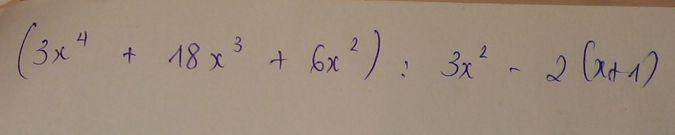 (3x⁴ + 18x³ + 6x²) : 3x² - 2(x+1)